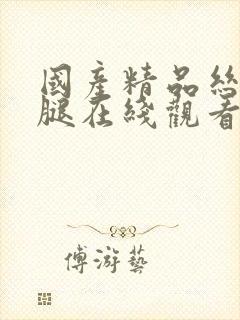 國產精品絲
腿在綫觀看
傅游藝